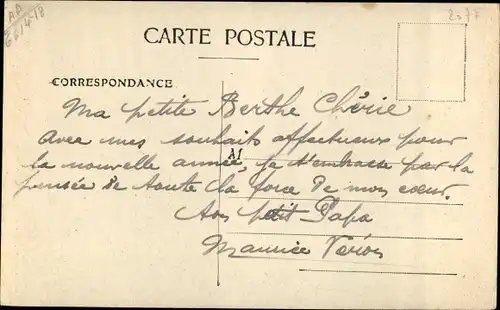 AA
6614-18
CARTE POSTALE
CORRESPONDANCE
Ma petite Berthe Chérie
Avec mes souhaits affectueux pour
la nouvelle année, je t'embrasse par la
pensée de toute la force de mon cœur.
A1
Ton petit Papa
Maurice